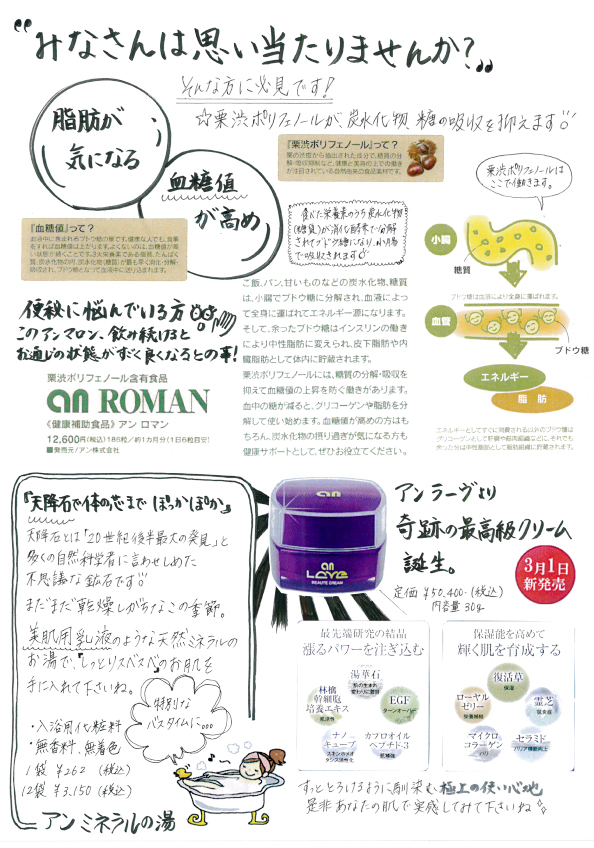 "みなさんは思い当たりませんか?"
そんな方に必見です!
☆栗渋ポリフェノールが、炭水化物、糖の吸収を抑えます
脂肪が
気になる
血糖値
が高め
『栗渋ポリフェノール』って?
栗の渋皮から抽出された成分で、糖質の分
解・吸収抑制など、健康と美容の上での働き
が注目されている自然由来の食品素材です。
栗渋ポリフェノールは
ここで働きます。
『血糖値』って?
血液中に含まれるブドウ糖の量です。健康な人でも、食事
をすれば血糖値は上がります。よくないのは、血糖値が高
い状態が続くことです。3大栄養素である脂質、たんぱく
質、炭水化物の内、炭水化物(糖質)が最も早く消化・分解・
吸収され、ブドウ糖となって血液中に送り込まれます。
食べた栄養素のうち炭水化物
(糖質)が消化酵素で分解
されてブドウ糖になり、小腸
で吸収されます。
小腸
糖質
ブドウ糖は血液により全身に運ばれます。
血管
ブドウ糖
エネルギー
脂肪
エネルギーとしてすぐに消費される以外のブドウ糖は
グリコーゲンとして肝臓や筋肉組織などに、それでも
余った分は中性脂肪として脂肪組織に貯蔵されます。
便秘に悩んでいる方
このアンマロン、飲み続けると
お通じの状態がすごく良くなるとの事!
ご飯、パン、甘いものなどの炭水化物、糖質
は、小腸でブドウ糖に分解され、血液によっ
て全身に運ばれてエネルギー源になります。
そして、余ったブドウ糖はインスリンの働き
により中性脂肪に変えられ、皮下脂肪や内
臓脂肪として体内に貯蔵されます。
栗渋ポリフェノールには、糖質の分解・吸収を
抑えて血糖値の上昇を防ぐ働きがあります。
血中の糖が減ると、グリコーゲンや脂肪を分
解して使い始めます。血糖値が高めの方はも
ちろん、炭水化物の摂り過ぎが気になる方も
健康サポートとして、ぜひお役立てください。
栗渋ポリフェノール含有食品
an ROMAN
《健康補助食品》アン ロマン
12,600円(税込)186粒/約1カ月分(1日6粒目安)
■発売元/アン株式会社
『天降石で体の芯までぽっかぽか』
天降石とは「20世紀後半最大の発見」と
多くの自然科学者に言わせしめた
不思議な鉱石です
まだまだ乾燥しがちなこの季節。
美肌用乳液のような天然ミネラルの
お湯で、『しっとりスベスベ』のお肌を
手に入れて下さいね。
特別な
バスタイムに…
・入浴用化粧料
・無香料、無着色
1袋 ¥262 (税込)
12袋 ¥3,150 (税込)
アンミネラルの湯
an
an
Love
BEAUTE CREAM
アンラーヴより
奇跡の最高級クリーム
誕生。
3月1日
新発売
定価 ¥50,400-(税込)
内容量 30g
最先端研究の結晶
漲るパワーを注ぎ込む
湯華石
肌の生まれ
変わりに着目
林檎
幹細胞
培養エキス
抗活性
EGF
ターンオーバー
ナノ
キューブ
カフロオイル
ヘプチド-3
保湿能を高めて
輝く肌を育成する
復活草
保湿
ローヤル
ゼリー
栄養補給
霊芝
マイクロ
コラーゲン
ハリ
セラミド
バリア機能向上
すっととろけるように馴染む極上の使い心地
是非あなたの肌で実感してみて下さいね